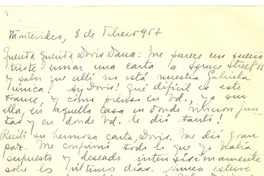 Montevideo, 8 de Febrero 957
Querida Querida Doris Dana: Me parece un sueño
triste enviar una carta a Spruce Street 15
y saber que allí no está nuestra Gabriela
única! Ay Doris! Qué difícil es este
trance, y como pienso en Ud., sin
ella, en aquella casa en donde
y en donde Ud. le dió tanto!
Recibí su hermosa carta, Doris. Me dió gran
paz. Me confirmó todo lo que yo había
supuesto y deseado intensivamente
en los últimos días. Nunca estuve